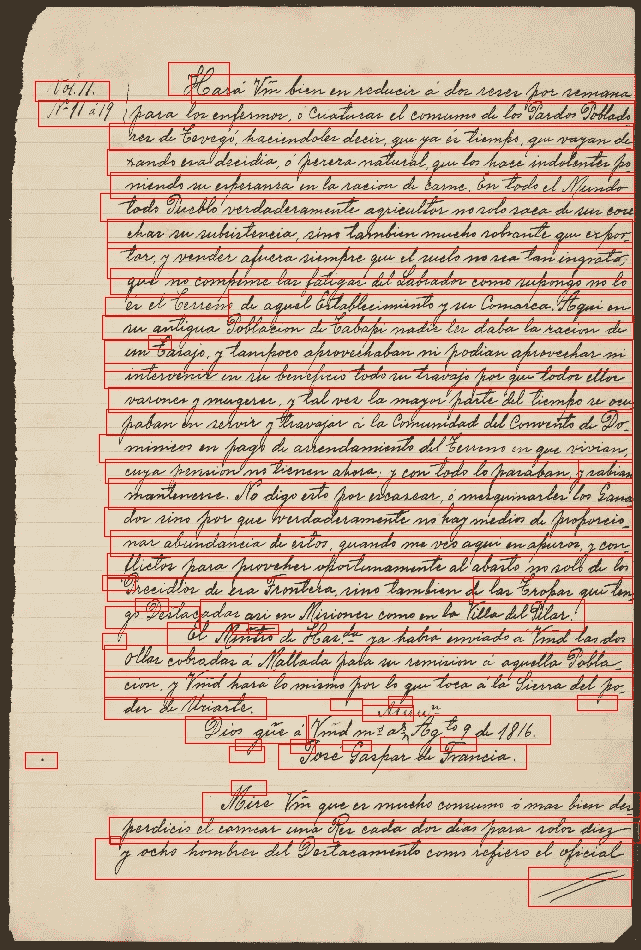 Vol. 11.
Nº 11 á 19
Hará Vm̃ bien en reducir á dos reses por semana
para los enfermos, ó criaturas el consumo de los Pardos Poblado
res de Tevegó, haciendoles decir, que ya és tiempo, que vayan de
xando esa decidia, ó pereza natural, que los hace indolentes po
niendo su esperanza en la racion de carne. En todo el Mundo
todo Pueblo verdaderamente agricultor no solo saca de sus cose
chas su subsistencia, sino tambien mucho sobrante que expor-
tar, y vender afuera siempre que el suelo no sea tan ingrato,
que no compense las fatigas del Labrador como supongo no lo
és el Terreno de aquel Establecimiento y su Comarca. Aqui en
su antigua Poblacion de Tabapi nadie les daba la racion de
un Tasajo, y tampoco aprovechaban ni podian aprovechar ni
intervenir en su beneficio todo su travajo por que todos ellos
varones y mugeres, y tal vez la mayor parte del tiempo se ocu
paban en servir y travajar á la Comunidad del Convento de Do-
minicos en pago de arrendamiento del Terreno en que vivian,
cuya pension no tienen ahora: y con todo lo pasaban, y sabian
mantenerse. No digo esto por escasear, ó mesquinarles los Gana
dos sino por que verdaderamente no hay medios de proporcio-
nar abundancia de estos, quando me veo aqui en apuros, y con-
flictos para proveher oportunamente al abasto no solo de los
Presidios de esa Frontera, sino tambien de las Tropas que ten-
go Destacadas asi en Misiones como en la Villa del Pilar.
El Mintro de Hasda ya habrá enviado á Vmd las dos
ollas cobradas á Mallada para su remision á aquella Pobla-
cion. y Vmd hará lo mismo por lo que toca á la Sierra del po-
der de Uriarte.
Dios güe á Vmd ms as Agto 9 de 1816.
Jose Gaspar de Francia.
Mire Vm̃ que es mucho consumo ó mas bien des-
perdicio el carnear una Res cada dos dias para solos diez
y ocho hombres del Destacamento como refiere el oficial